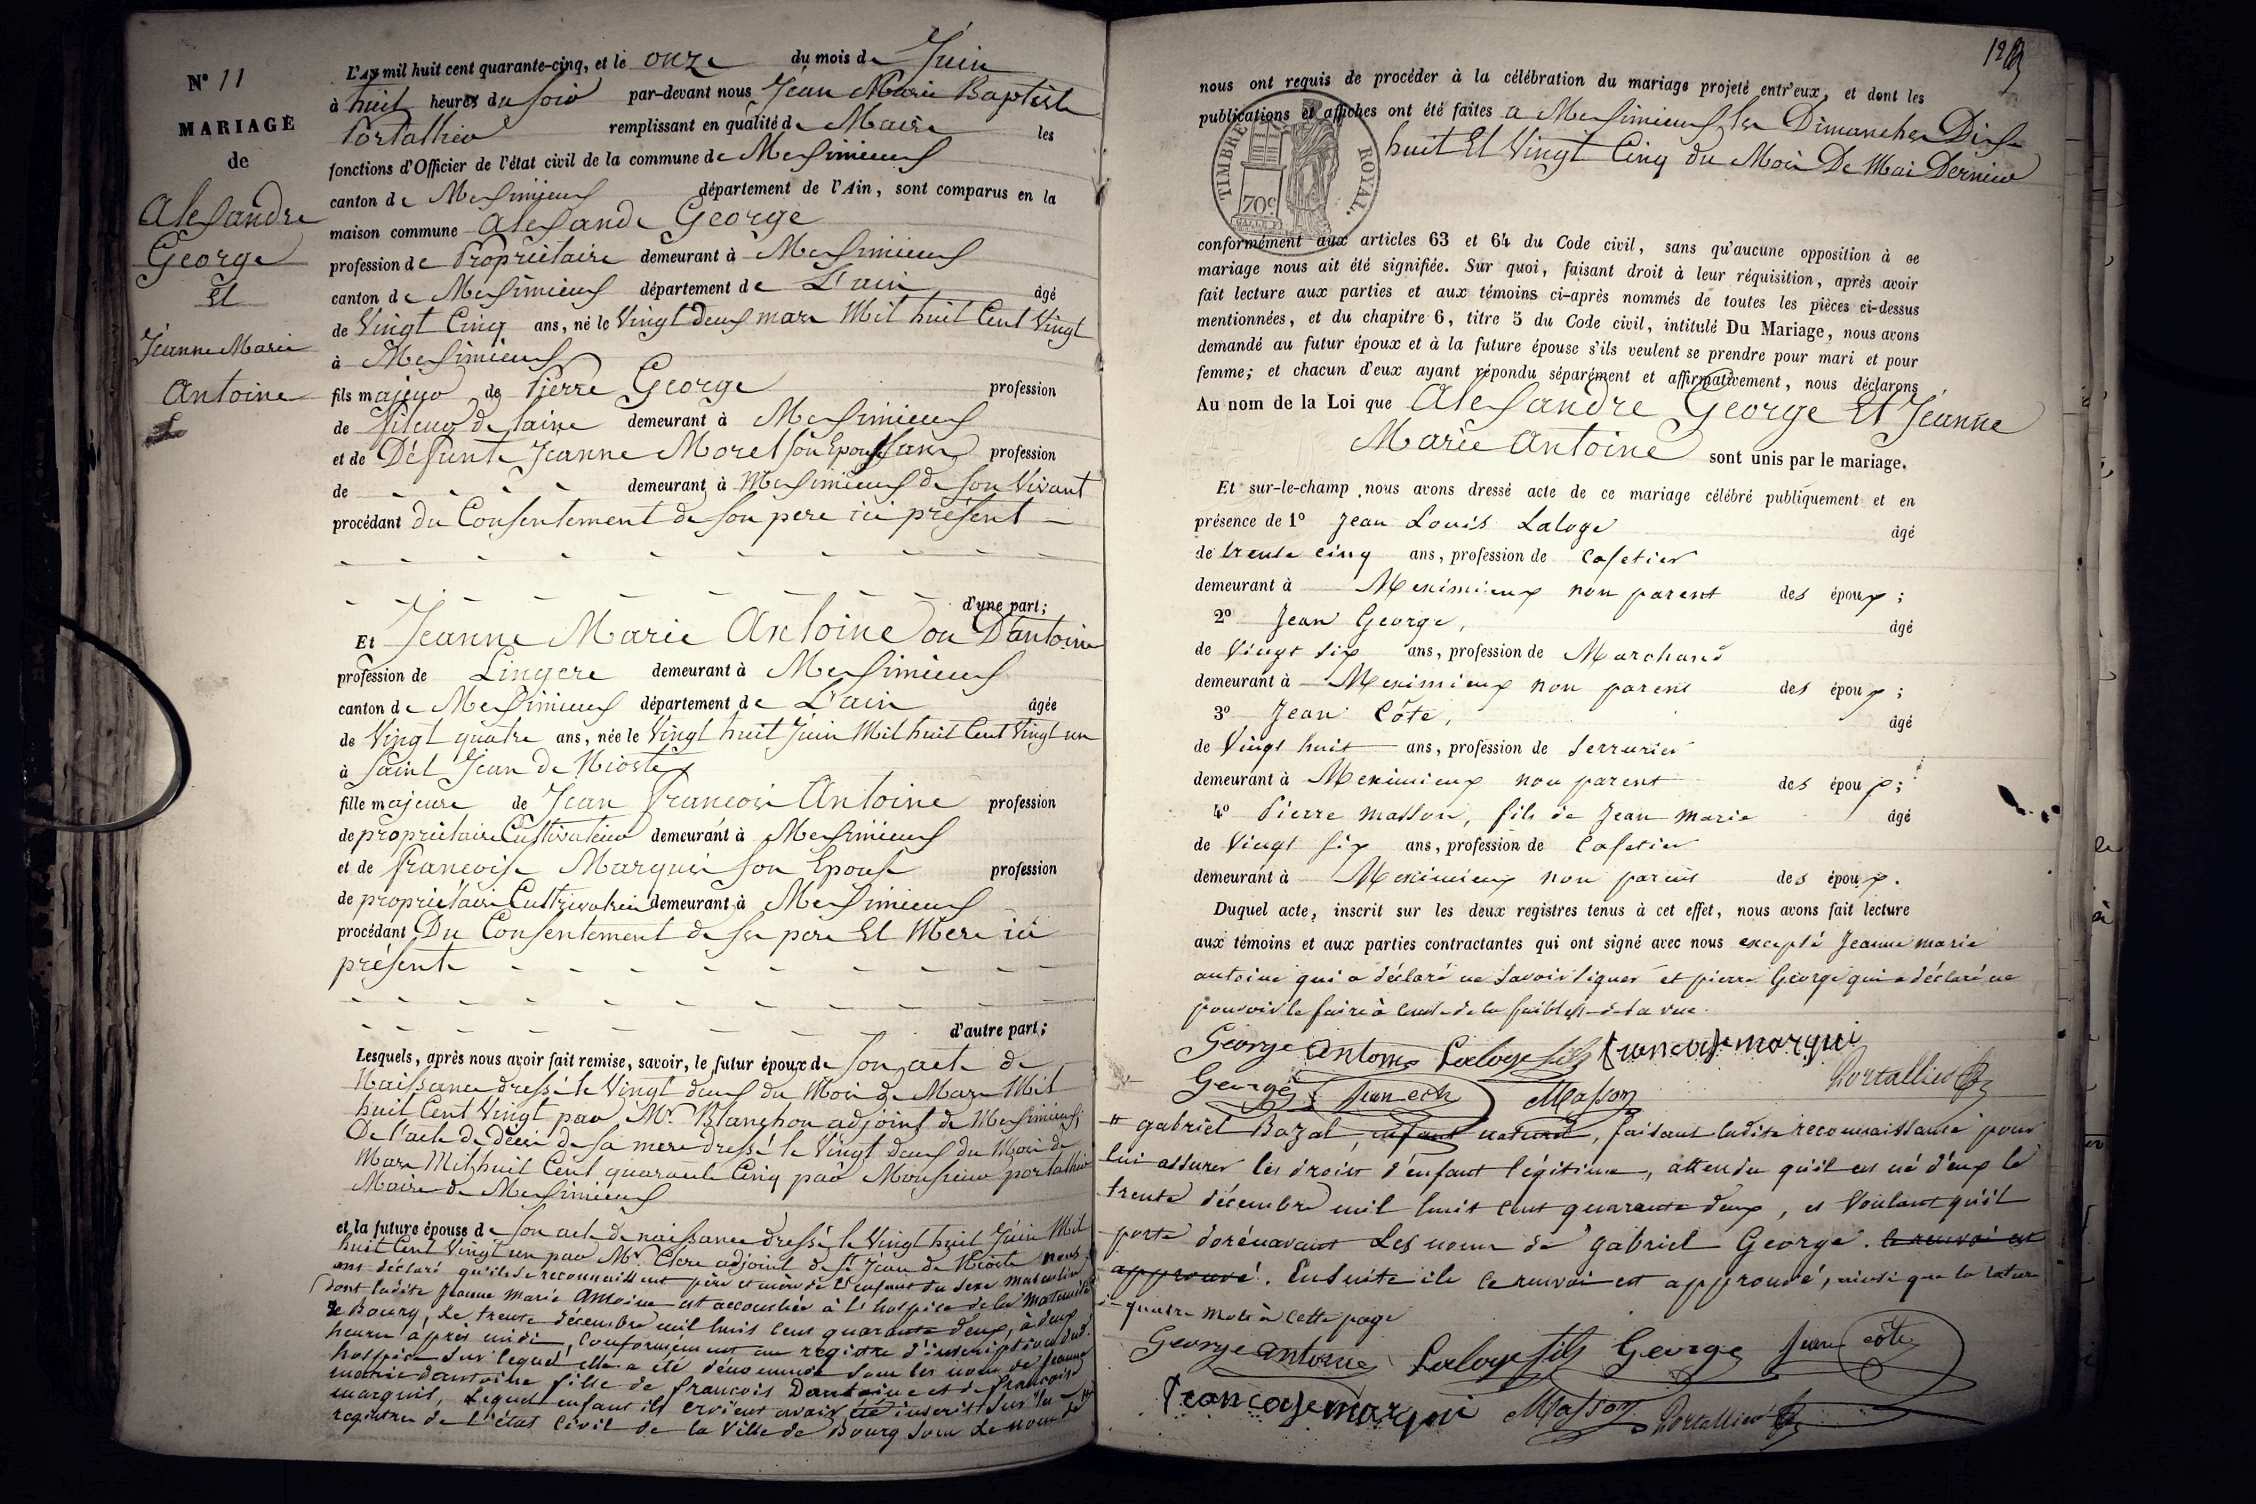 N° 11
MARIAGE
de
Alesandre
George
Et
Jeanne Marie
Antoine
L'AN mil huit cent quarante-cinq, et le onze du mois de Juin
à huit heures du soir par-devant nous Jean Marie Baptiste
Portallier remplissant en qualité de Maire les
fonctions d'Officier de l'état civil de la commune de Messimieux
canton de Messimieux département de l'Ain, sont comparus en la
maison commune Alesandre George
profession de Propriétaire demeurant à Messimieux
canton de Messimieux département de L'ain âgé
de Vingt Cinq ans, né le Vingt deux mars Mil huit Cent Vingt
à Messimieux
fils majeur de Pierre George profession
de fileur de laine demeurant à Messimieux
et de Défunte Jeanne Morel son Epouse sans profession
de demeurant à Messimieux de son Vivant
procédant du Consentement de son pere ici présent
d'une part;
Et Jeanne Marie Antoine ou D'antoine
profession de Lingere demeurant à Messimieux
canton de Messimieux département de L'ain âgée
de Vingt quatre ans, née le Vingt huit Juin Mil huit Cent Vingt un
à Saint Jean de Niost
fille majeure de Jean François Antoine profession
de propriétaire Cultivateur demeurant à Messimieux
et de Françoise Marquis son Epouse profession
de propriétaire Cultivateur demeurant à Messimieux
procédant Du Consentement de ses pere Et Mere ici
présente
d'autre part;
Lesquels, après nous avoir fait remise, savoir, le futur époux de son acte de
Naissance dressé le Vingt deux du Mois de Mars Mil
huit Cent Vingt par Mr. Blanchon adjoint de Messimieux;
De l'acte de décès de sa mere dressé le Vingt deux du Mois de
Mars Mil huit Cent quarante Cinq par Monsieur portallier
Maire de Messimieux
et la future épouse de son acte de naissance dressé le Vingt huit Juin Mil
huit Cent Vingt un par Mr. Clere adjoint de St Jean de Nioste nous
ont déclaré qu'ils se reconnaissent père et mère de l'enfant du sexe masculin
dont ladite Jeanne Marie Antoine est accouchée à l'hospice de la Maternité
de Bourg, le trente décembre mil huit cent quarante deux, à deux
heures après midi, conformément au registre d'inscription dud.
hospice sur lequel elle a été dénommée sous les noms de Jeanne
marie dantoine fille de francois Dantoine et de françoise
marquis, lequel enfant ils croient avoir été inscrit sur les
registres de l'état civil de la Ville de Bourg sous le nom de
nous ont requis de procéder à la célébration du mariage projeté entr'eux, et dont les
publications et affiches ont été faites a Messimieux les Dimanches Dix
huit Et Vingt Cinq du Mois De Mai Dernier
TIMBRE ROYAL.
70c
conformément aux articles 63 et 64 du Code civil, sans qu'aucune opposition à ce
mariage nous ait été signifiée. Sur quoi, faisant droit à leur réquisition, après avoir
fait lecture aux parties et aux témoins ci-après nommés de toutes les pièces ci-dessus
mentionnées, et du chapitre 6, titre 5 du Code civil, intitulé Du Mariage, nous avons
demandé au futur époux et à la future épouse s'ils veulent se prendre pour mari et pour
femme; et chacun d'eux ayant répondu séparément et affirmativement, nous déclarons
Au nom de la Loi que Alesandre George Et Jeanne
Marie Antoine sont unis par le mariage.
Et sur-le-champ nous avons dressé acte de ce mariage célébré publiquement et en
présence de 1° Jean Louis Laloge âgé
de trente cinq ans, profession de Cafetier
demeurant à Meximieux non parent des époux;
2° Jean George, âgé
de Vingt six ans, profession de Marchand
demeurant à Meximieux non parent des époux;
3° Jean Côte, âgé
de Vingt huit ans, profession de Serrurier
demeurant à Meximieux non parent des époux;
4° Pierre Masson, fils de Jean marie âgé
de Vingt six ans, profession de Cafetier
demeurant à Meximieux non parent des époux.
Duquel acte, inscrit sur les deux registres tenus à cet effet, nous avons fait lecture
aux témoins et aux parties contractantes qui ont signé avec nous excepté Jeanne marie
antoine qui a déclaré ne savoir signer et pierre George qui a déclaré ne
pouvoir le faire à cause de la faiblesse de sa vue.
George antoine Laloge fils francoise marqui
George Jean cote Masson Portallier
gabriel Bazal, enfant naturel, faisant ladite reconnaissance pour
lui assurer les droits d'enfant légitime, attendu qu'il est né d'eux le
trente décembre mil huit cent quarante deux, et Voulant qu'il
porte dorénavant les noms de gabriel George. le renvoi est
approuvé. Ensuite ile le renvoi est approuvé, ainsi que la rature
de quatre mots à cette page
George antoine Laloge fils George Jean côte
francoise marqui Masson Portallier